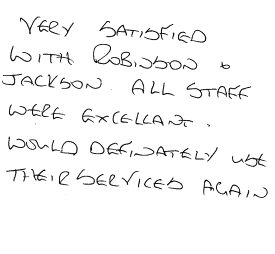 VERY SATISFIED
WITH ROBINSON &
JACKSON. ALL STAFF
WERE EXCELLANT.
WOULD DEFINATELY USE
THEIR SERVICES AGAIN